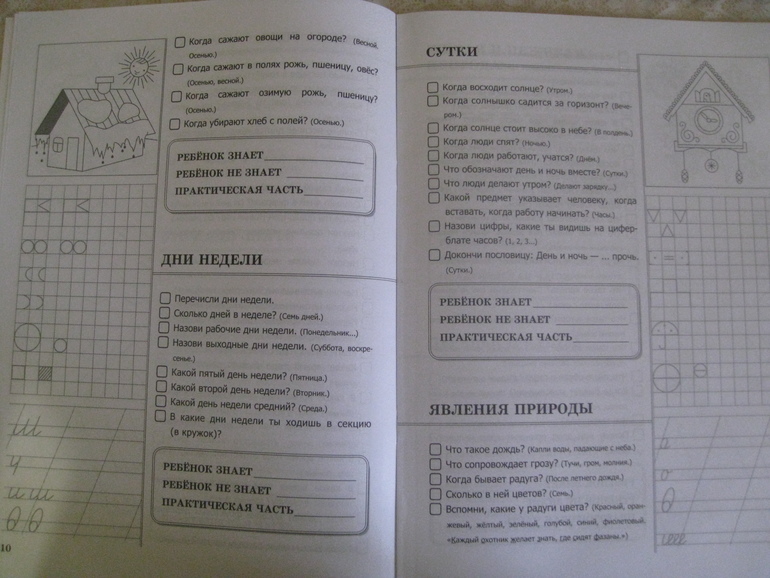 Когда сажают овощи на огороде? (Весной. Осенью.)
Когда сажают в полях рожь, пшеницу, овёс?
(Осенью, весной.)
Когда сажают озимую рожь, пшеницу?
(Осенью.)
Когда убирают хлеб с полей? (Осенью.)
РЕБЁНОК ЗНАЕТ
РЕБЁНОК НЕ ЗНАЕТ
ПРАКТИЧЕСКАЯ ЧАСТЬ
ДНИ НЕДЕЛИ
Перечисли дни недели.
Сколько дней в неделе? (Семь дней.)
Назови рабочие дни недели. (Понедельник...)
Назови выходные дни недели. (Суббота, воскре-
сенье.)
Какой пятый день недели? (Пятница.)
Какой второй день недели? (Вторник.)
Какой день недели средний? (Среда.)
В какие дни недели ты ходишь в секцию
(в кружок)?
РЕБЁНОК ЗНАЕТ
РЕБЁНОК НЕ ЗНАЕТ
ПРАКТИЧЕСКАЯ ЧАСТЬ
ш
у
и ш
10
СУТКИ
Когда восходит солнце? (Утром.)
Когда солнышко садится за горизонт? (Вече-
ром.)
Когда солнце стоит высоко в небе? (В полдень.)
Когда люди спят? (Ночью.)
Когда люди работают, учатся? (Днём.)
Что обозначают день и ночь вместе? (Сутки.)
Что люди делают утром? (Делают зарядку...)
Какой предмет указывает человеку, когда
вставать, когда работу начинать? (Часы.)
Назови цифры, какие ты видишь на цифер-
блате часов? (1, 2, 3...)
Докончи пословицу: День и ночь — ... прочь.
(Сутки.)
РЕБЁНОК ЗНАЕТ
РЕБЁНОК НЕ ЗНАЕТ
ПРАКТИЧЕСКАЯ ЧАСТЬ
ЯВЛЕНИЯ ПРИРОДЫ
Что такое дождь? (Капли воды, падающие с неба.)
Что сопровождает грозу? (Тучи, гром, молния.)
Когда бывает радуга? (После летнего дождя.)
Сколько в ней цветов? (Семь.)
Вспомни, какие у радуги цвета? (Красный, оран-
жевый, жёлтый, зелёный, голубой, синий, фиолетовый.
«Каждый охотник желает знать, где сидят фазаны.»)